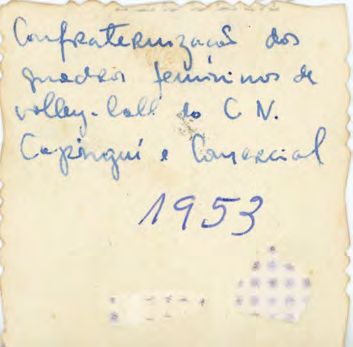 Confraternização dos
quadros femininos de
volley-ball do C N.
Capinguí e Comercial
1953